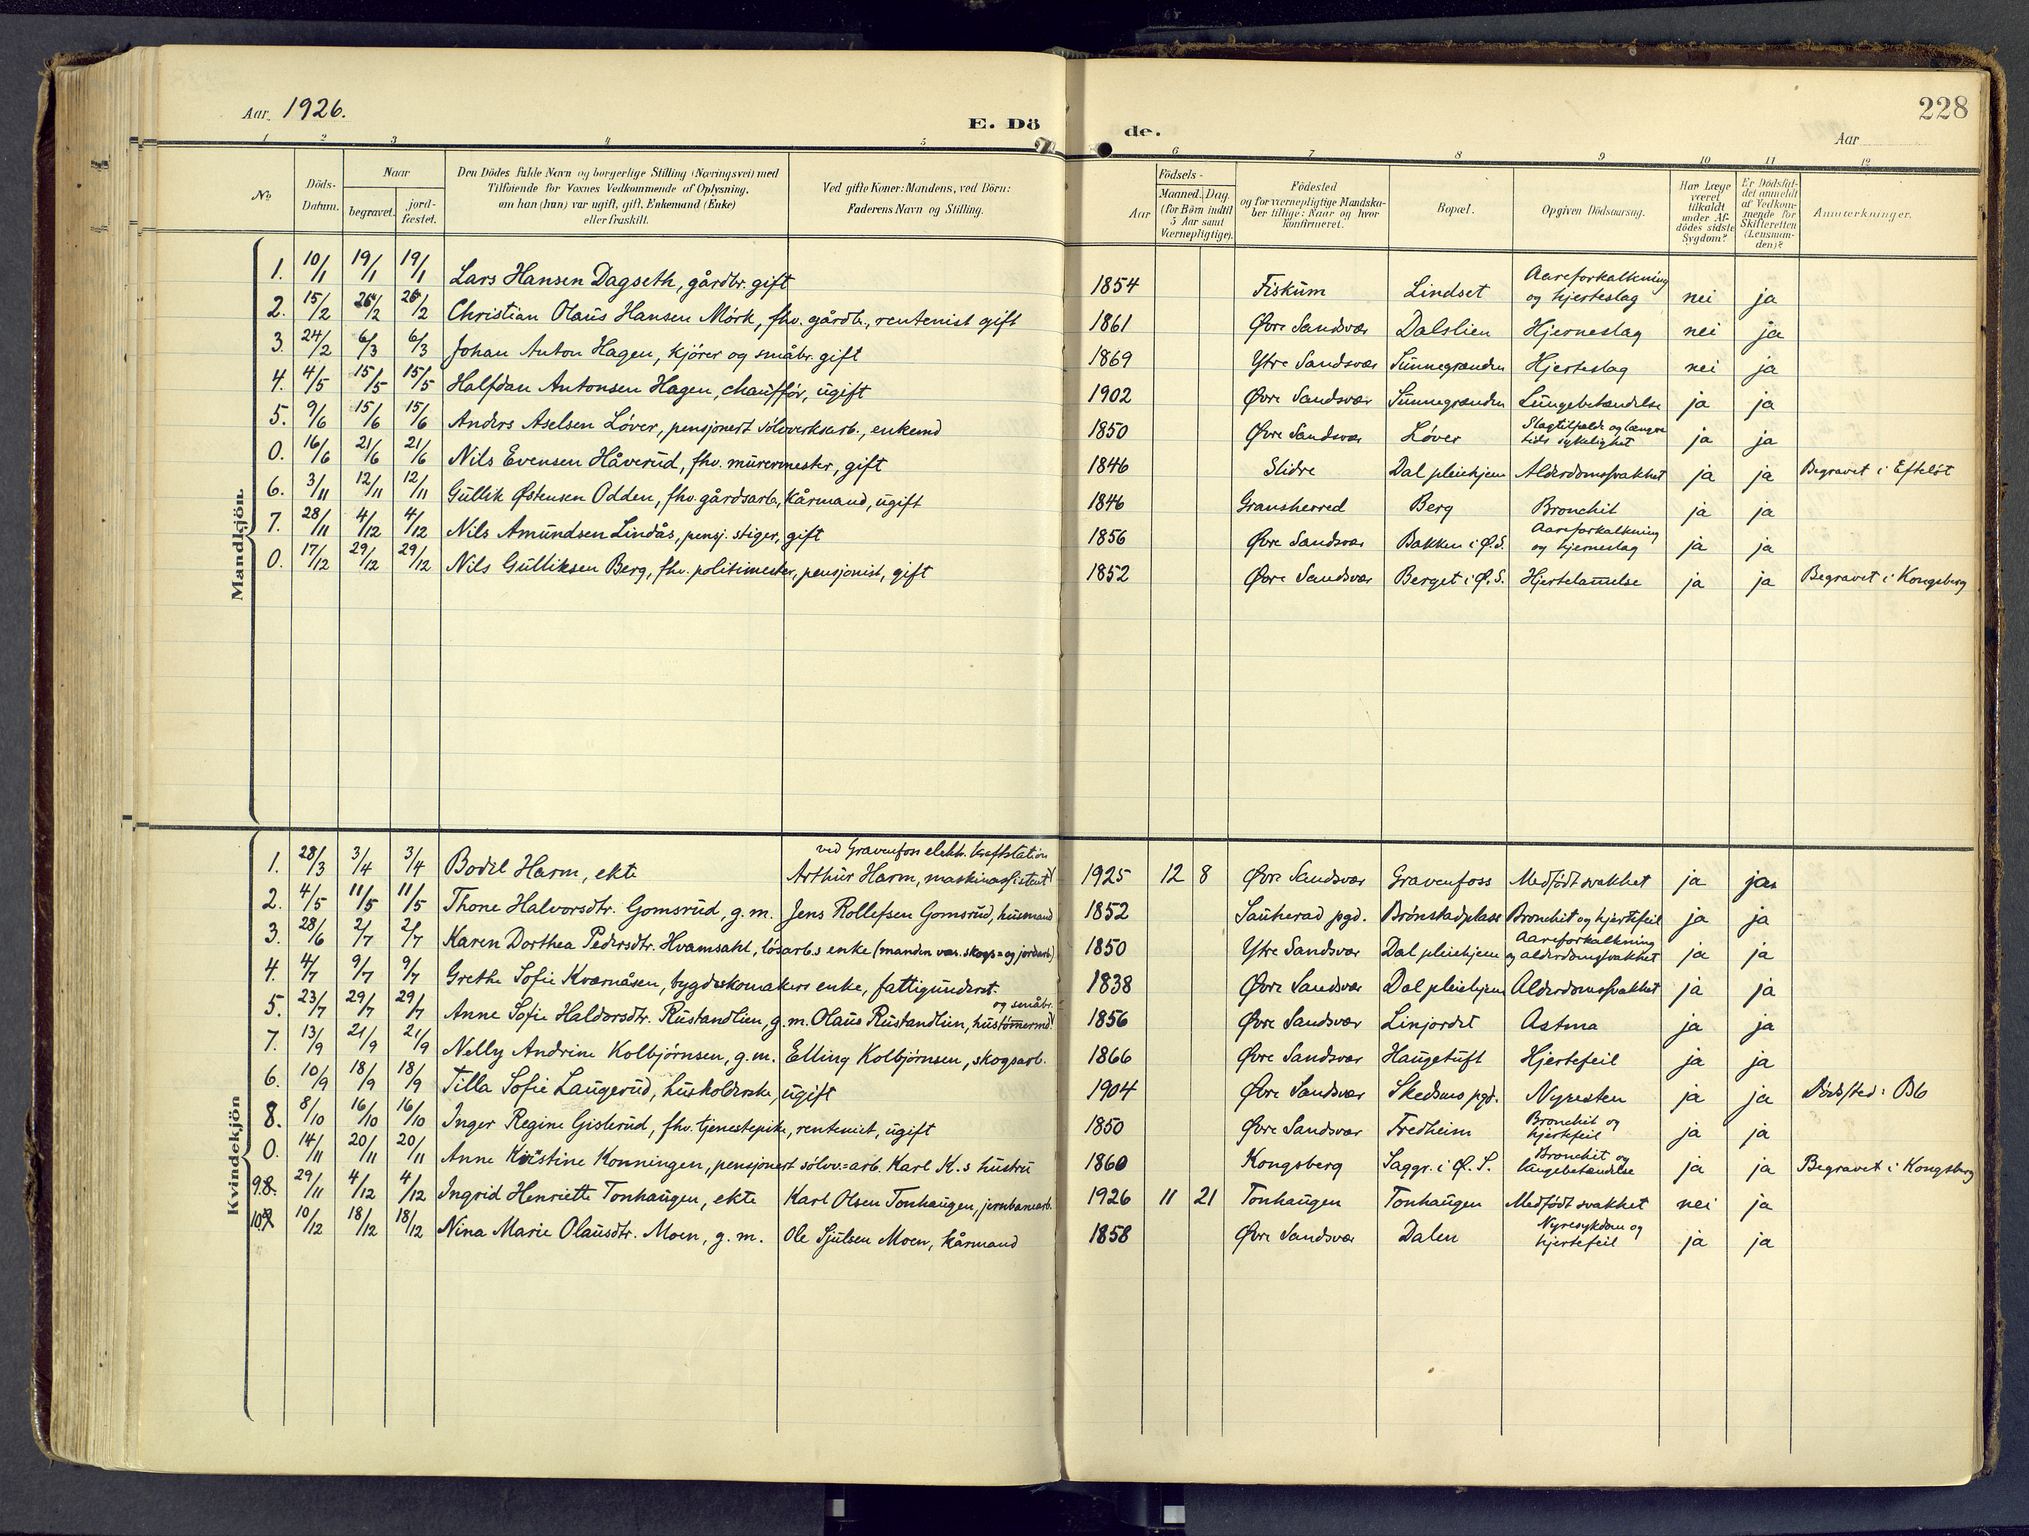 Aar. 1926.
E. Dö de.
228
Aar
1 2 3 4 5 6 7 8 9 10 11 12
No
Döds-Datum.
Naar
begravet.
jord-fæstet.
Den Dödes fulde Navn og borgerlige Stilling (Næringsvei) med
Tilföiende for Voxnes Vedkommende af Oplysning,
om han (hun) var ugift, gift, Enkemand (Enke)
eller fraskilt.
Ved gifte Koner: Mandens, ved Börn:
Faderens Navn og Stilling.
Födsels-
Aar
Maaned. Dag.
(for Börn indtil
5 Aar samt
Værnepligtige).
Födested
og for værnepligtige Mandska-
ber tillige: Naar og hvor
konfirmeret.
Bopæl.
Opgiven Dödsaarsag.
Har Læge
været
tilkaldt
under Af-
dödes sidste
Sygdom?
Er Dödsfal-
det anmeldt
af Vedkom-
mende for
Skifteretten
(Lensman-
den)?
Anmærkninger.
Mandkjön.
1. 10/1 19/1 19/1 Lars Hansen Dagseth, gårdbr. gift 1854 Fiskum Lindset Aareforkalkning og hjerteslag nei ja
2. 15/2 26/2 26/2 Christian Olaus Hansen Mørk, fhv. gårdb., rentenist gift 1861 Øvre Sandsvær Dalslien Hjerneslag nei ja
3. 24/2 6/3 6/3 Johan Anton Hagen, kjører og småbr. gift 1869 Ytre Sandsvær Sünnegrænden Hjerteslag nei ja
4. 4/5 15/5 15/5 Halfdan Antonsen Hagen, chauffør, ugift 1902 Øvre Sandsvær Sünnegrænden Lungebetændelse ja ja
5. 9/6 15/6 15/6 Anders Aselsen Løver, pensjonert sölvverksarb., enkemd 1850 Øvre Sandsvær Løver Slagtilfælde og længre tids sykelighet ja ja
0. 16/6 21/6 21/6 Nils Evensen Håverud, fhv. murermester, gift 1846 Slidre Dal pleiehjem Alderdomssvakhet ja ja Begravet i Efteløt
6. 3/11 12/11 12/11 Gullik Østensen Odden, fhv. gårdsarb., kårmand, ugift 1846 Gransherred Berg Bronchit ja ja
7. 28/11 4/12 4/12 Nils Amundsen Lindås, pensj. stiger, gift 1856 Øvre Sandsvær Bakken i Ø.S. Aareforkalkning og hjerneslag ja ja
0. 17/12 29/12 29/12 Nils Gulliksen Berg, fhv. politimester, pensjonist, gift 1852 Øvre Sandsvær Berget i Ø.S. Hjertelammelse ja ja Begravet i Kongsberg
Kvindekjön
1. 28/3 3/4 3/4 Bodil Harm, ekte ved Gravenfoss elektr. kraftstation Arthur Harm, maskinassistent 1925 12 8 Øvre Sandsvær Gravenfoss Medfödt svakhet ja ja
2. 4/5 11/5 11/5 Thone Halvorsdtr. Gomsrud, g. m. Jens Rollefsen Gomsrud, husmand 1852 Sauherad pgd. Brønstadplass Bronchit og hjertefeil ja ja
3. 28/6 2/7 2/7 Karen Dorthea Pedersdtr. Hvamsahl, løsarb.s enke (manden var skogs= og jordarb) 1850 Ytre Sandsvær Dal pleiehjem Aareforkalkning og alderdomssvakhet ja ja
4. 4/7 9/7 9/7 Grethe Sofie Kværnåsen, bygdeskomakers enke, fattigunderst. 1838 Øvre Sandsvær Dal pleiehjem Alderdomssvakhet ja ja
5. 23/7 29/7 29/7 Anne Sofie Haldorsdtr. Rustandlien, g. m. Olaus Rustandlien, hustømermd og småbr. 1856 Øvre Sandsvær Linjordet Astma ja ja
7. 13/9 21/9 21/9 Nelly Andrine Kolbjørnsen, g. m. Elling Kolbjørnsen, skogsarb. 1866 Øvre Sandsvær Haugetuft Hjertefeil ja ja
6. 10/9 18/9 18/9 Tilla Sofie Laugerud, husholderske, ugift 1904 Øvre Sandsvær Skedsmo pgd. Nyresten ja ja Dødssted:
8. 8/10 16/10 16/10 Inger Regine Gislerud, fhv. tjenestepike, rentenist, ugift 1850 Øvre Sandsvær Fredheim Bronchit og hjertefeil ja ja
0. 14/11 20/11 20/11 Anne Kristine Konningen, pensjonert sölvv.=arb. Karl K.s hustru 1860 Kongsberg Saggr. i Ø. S. Bronchit og lungebetændelse ja ja Begravet i Kongsberg
9. 29/11 4/12 4/12 Ingrid Henriette Tonhaugen, ekte Karl Olsen Tonhaugen, jernbanearb. 1926 11 21 Tonhaugen Tonhaugen Medfödt svakhet nei ja
10. 10/12 18/12 18/12 Nina Marie Olausdtr. Moen, g. m. Ole Sjulsen Moen, kårmand 1858 Øvre Sandsvær Dalen Nyresykdom og hjertefeil ja ja